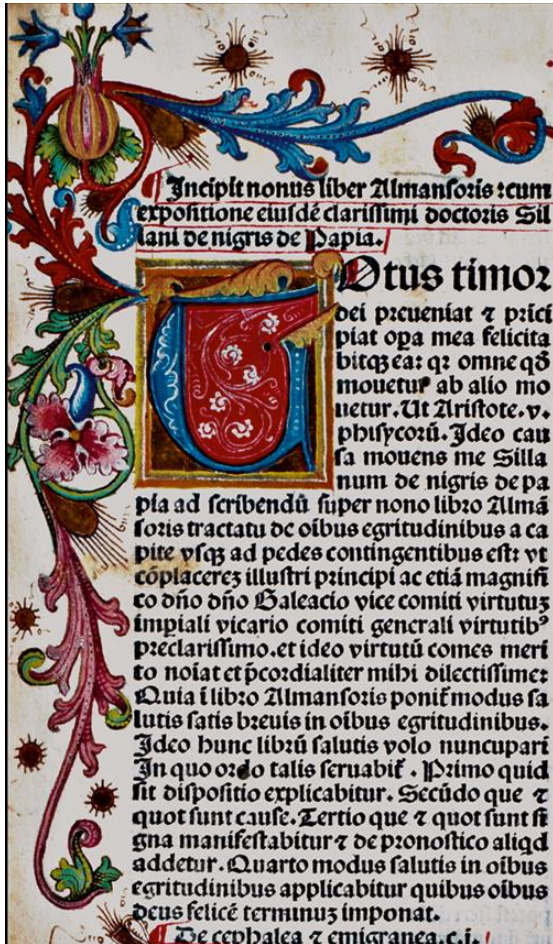 Incipit nonus liber Almansoris :cum
expositione eiusdē clarissimi doctoris Sil
lani de nigris de Papia.
UOtus timor
dei preueniat ⁊ prici
piat opa mea felicita
bitqꝫ ea: qꝛ omne qđ
mouetur ab alio mo
uetur. Ut Aristote. v.
phisycorū. Ideo cau
sa mouens me Silla
num de nigris de pa
pia ad scribendū super nono libro Almā
soris tractatu de oībus egritudinibus a ca
pite vsqꝫ ad pedes contingentibus est: vt
cōplacereꝫ illustri principi ac etiā magnifi
co dño dño Galeacio vice comiti virtutuꝫ
impiali vicario comiti generali virtutibꝰ
preclarissimo. et ideo virtutū comes meri
to noīat et p̄cordialiter mihi dilectissime:
Quia ī libro Almansoris ponit̄ modus sa
lutis satis breuis in oībus egritudinibus.
Ideo hunc librū salutis volo nuncupari
In quo ordo talis seruabit̄. Primo quid
sit dispositio explicabitur. Secūdo que ⁊
quot sunt cause. Tertio que ⁊ quot sunt si
gna manifestabitur ⁊ de pronostico aliqd
addetur. Quarto modus salutis in oībus
egritudinibus applicabitur quibus oībus
deus felicē terminuꝫ imponat.
De cephalea ⁊ emigranea. ei.